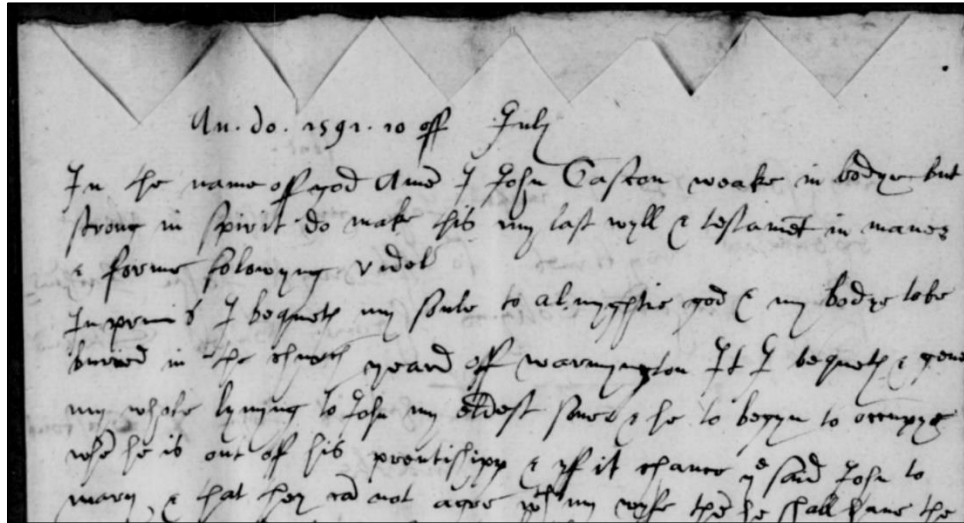 An. do. 1591. 10 off July
In the name off god Amē I John Caston weake in bodye but
strong in spirit do make this my last wyll & testamēt in maner
& forme folowyng videl
In primis I bequeth my soule to almyghtie god & my bodye to be
buried in the church yeard off warmyngton It I bequeth & geue
my whole lyuing to John my eldest sone & he to begyn to occupye
whē he is out off his prentishipp & yff it chance ye said John to
mary & that they cā not agre wth my wyfe thē he shall haue the